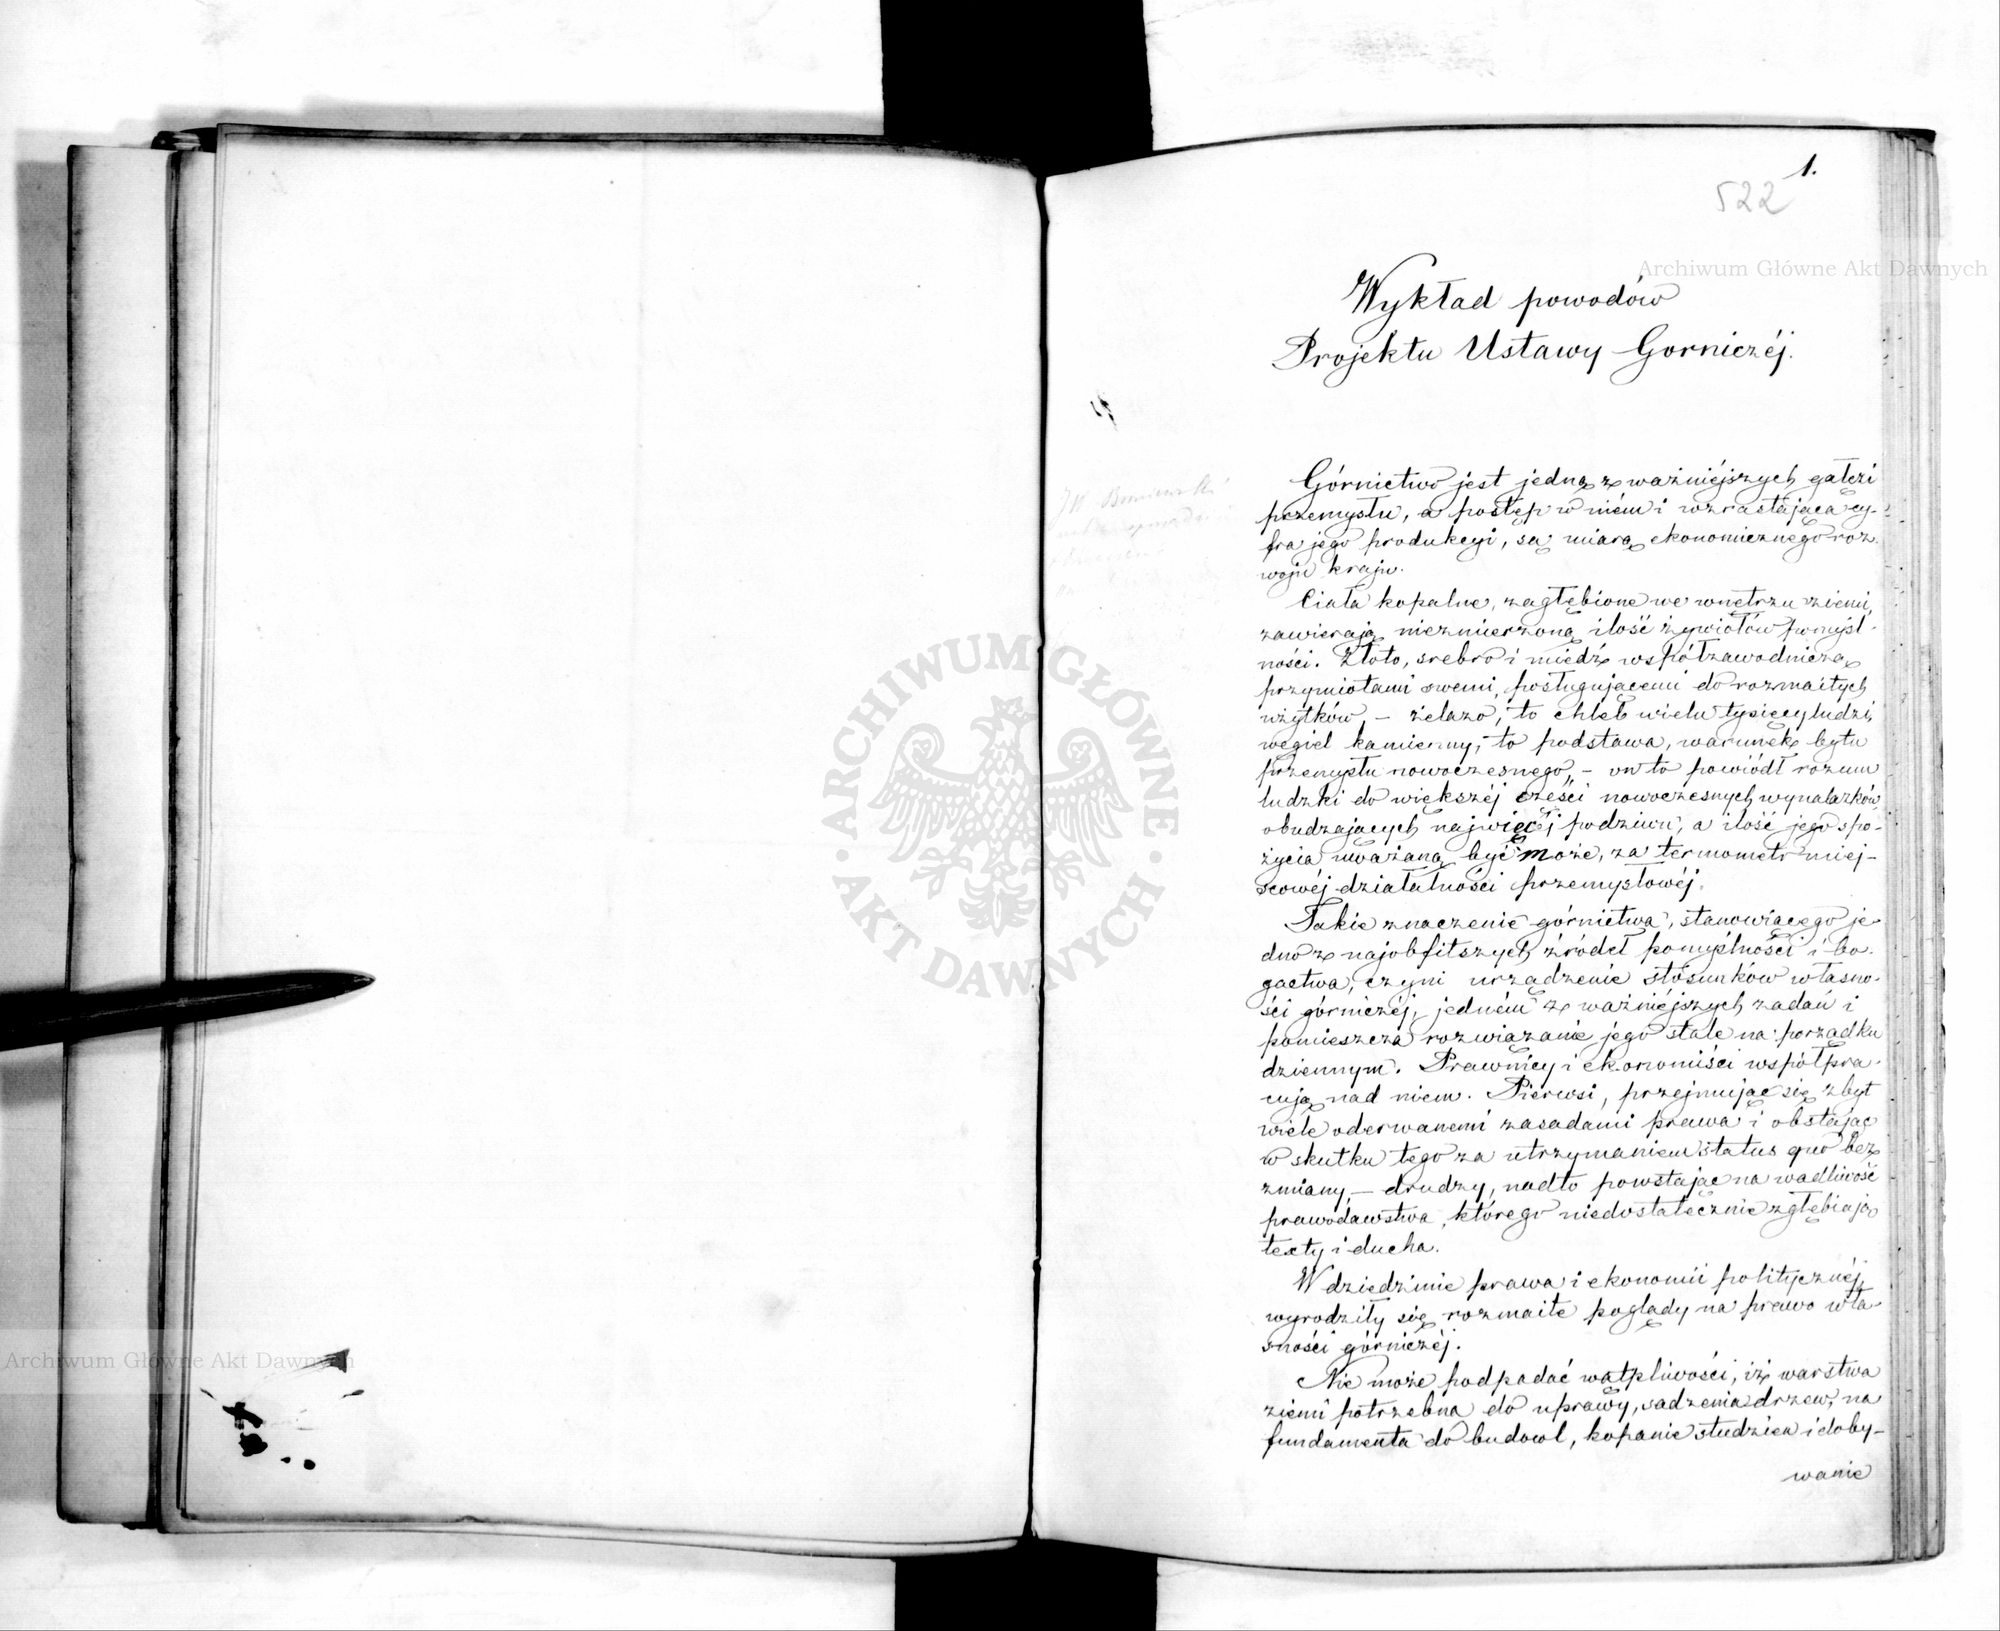 1.
522
Archiwum Główne Akt Dawnych
Wykład powodów
Projektu Ustawy Gorniczéj.
Górnictwo jest jedną z ważniéjszych gałęzi
przemysłu, a postęp w niém i wzrastająca cy-
fra jego produkcyi, są miarą ekonomicznego roz-
woju kraju.
Ciała kopalne, zagłębione we wnętrzu ziemi,
zawierają niezmierzoną ilość żywiołów pomyśl-
ności. Złoto, srebro i miedź współzawodniczą
przymiotami swemi, posługującemi do rozmaitych
użytków, – żelazo, to chleb wielu tysięcy ludzi,
węgiel kamienny, to podstawa, warunek bytu
przemysłu nowoczesnego, – on to powiódł rozum
ludzki do większéj części nowoczesnych wynalazków
obudzających najwięcéj podziwu, a ilość jego spo-
życia uważaną być może, za termometr miej-
scowéj działalności przemysłowéj.
Takie znaczenie górnictwa, stanowiącego je-
dno z najobfitszych źródeł pomyślności i bo-
gactwa, czyni urządzenie stósunków własno-
ści górniczéj, jedném z ważniéjszych zadań i
pomieszcza rozwiązanie jego stale na porządku
dziennym. Prawnicy i ekonomiści współpra-
cują nad niem. Pierwsi, przejmując się zbyt
wiele oderwanemi zasadami prawa i obstając
w skutku tego za utrzymaniem status quo bez
zmiany, – drudzy, nadto powstając na wadliwość
prawodawstwa, którego niedostatecznie zgłębiają
texty i ducha.
W dziedzinie prawa i ekonomii politycznéj,
wyrodziły się rozmaite poglądy na prawo wła-
sności górniczéj.
Nie może podpadać wątpliwości, iż warstwa
ziemi potrzebna do uprawy, sadzenia drzew, na
fundamenta do budowl, kopanie studzien i doby-
wanie
ARCHIWUM GŁÓWNE
AKT DAWNYCH
Archiwum Główne Akt Dawnych